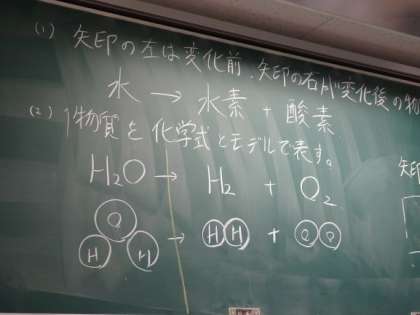 (1) 矢印の左は変化前、矢印の右が変化後の物
水 → 水素 + 酸素
(2) 1物質を化学式とモデルで表す。
H₂O → H₂ + O₂
O H H → H H + O O
矢印